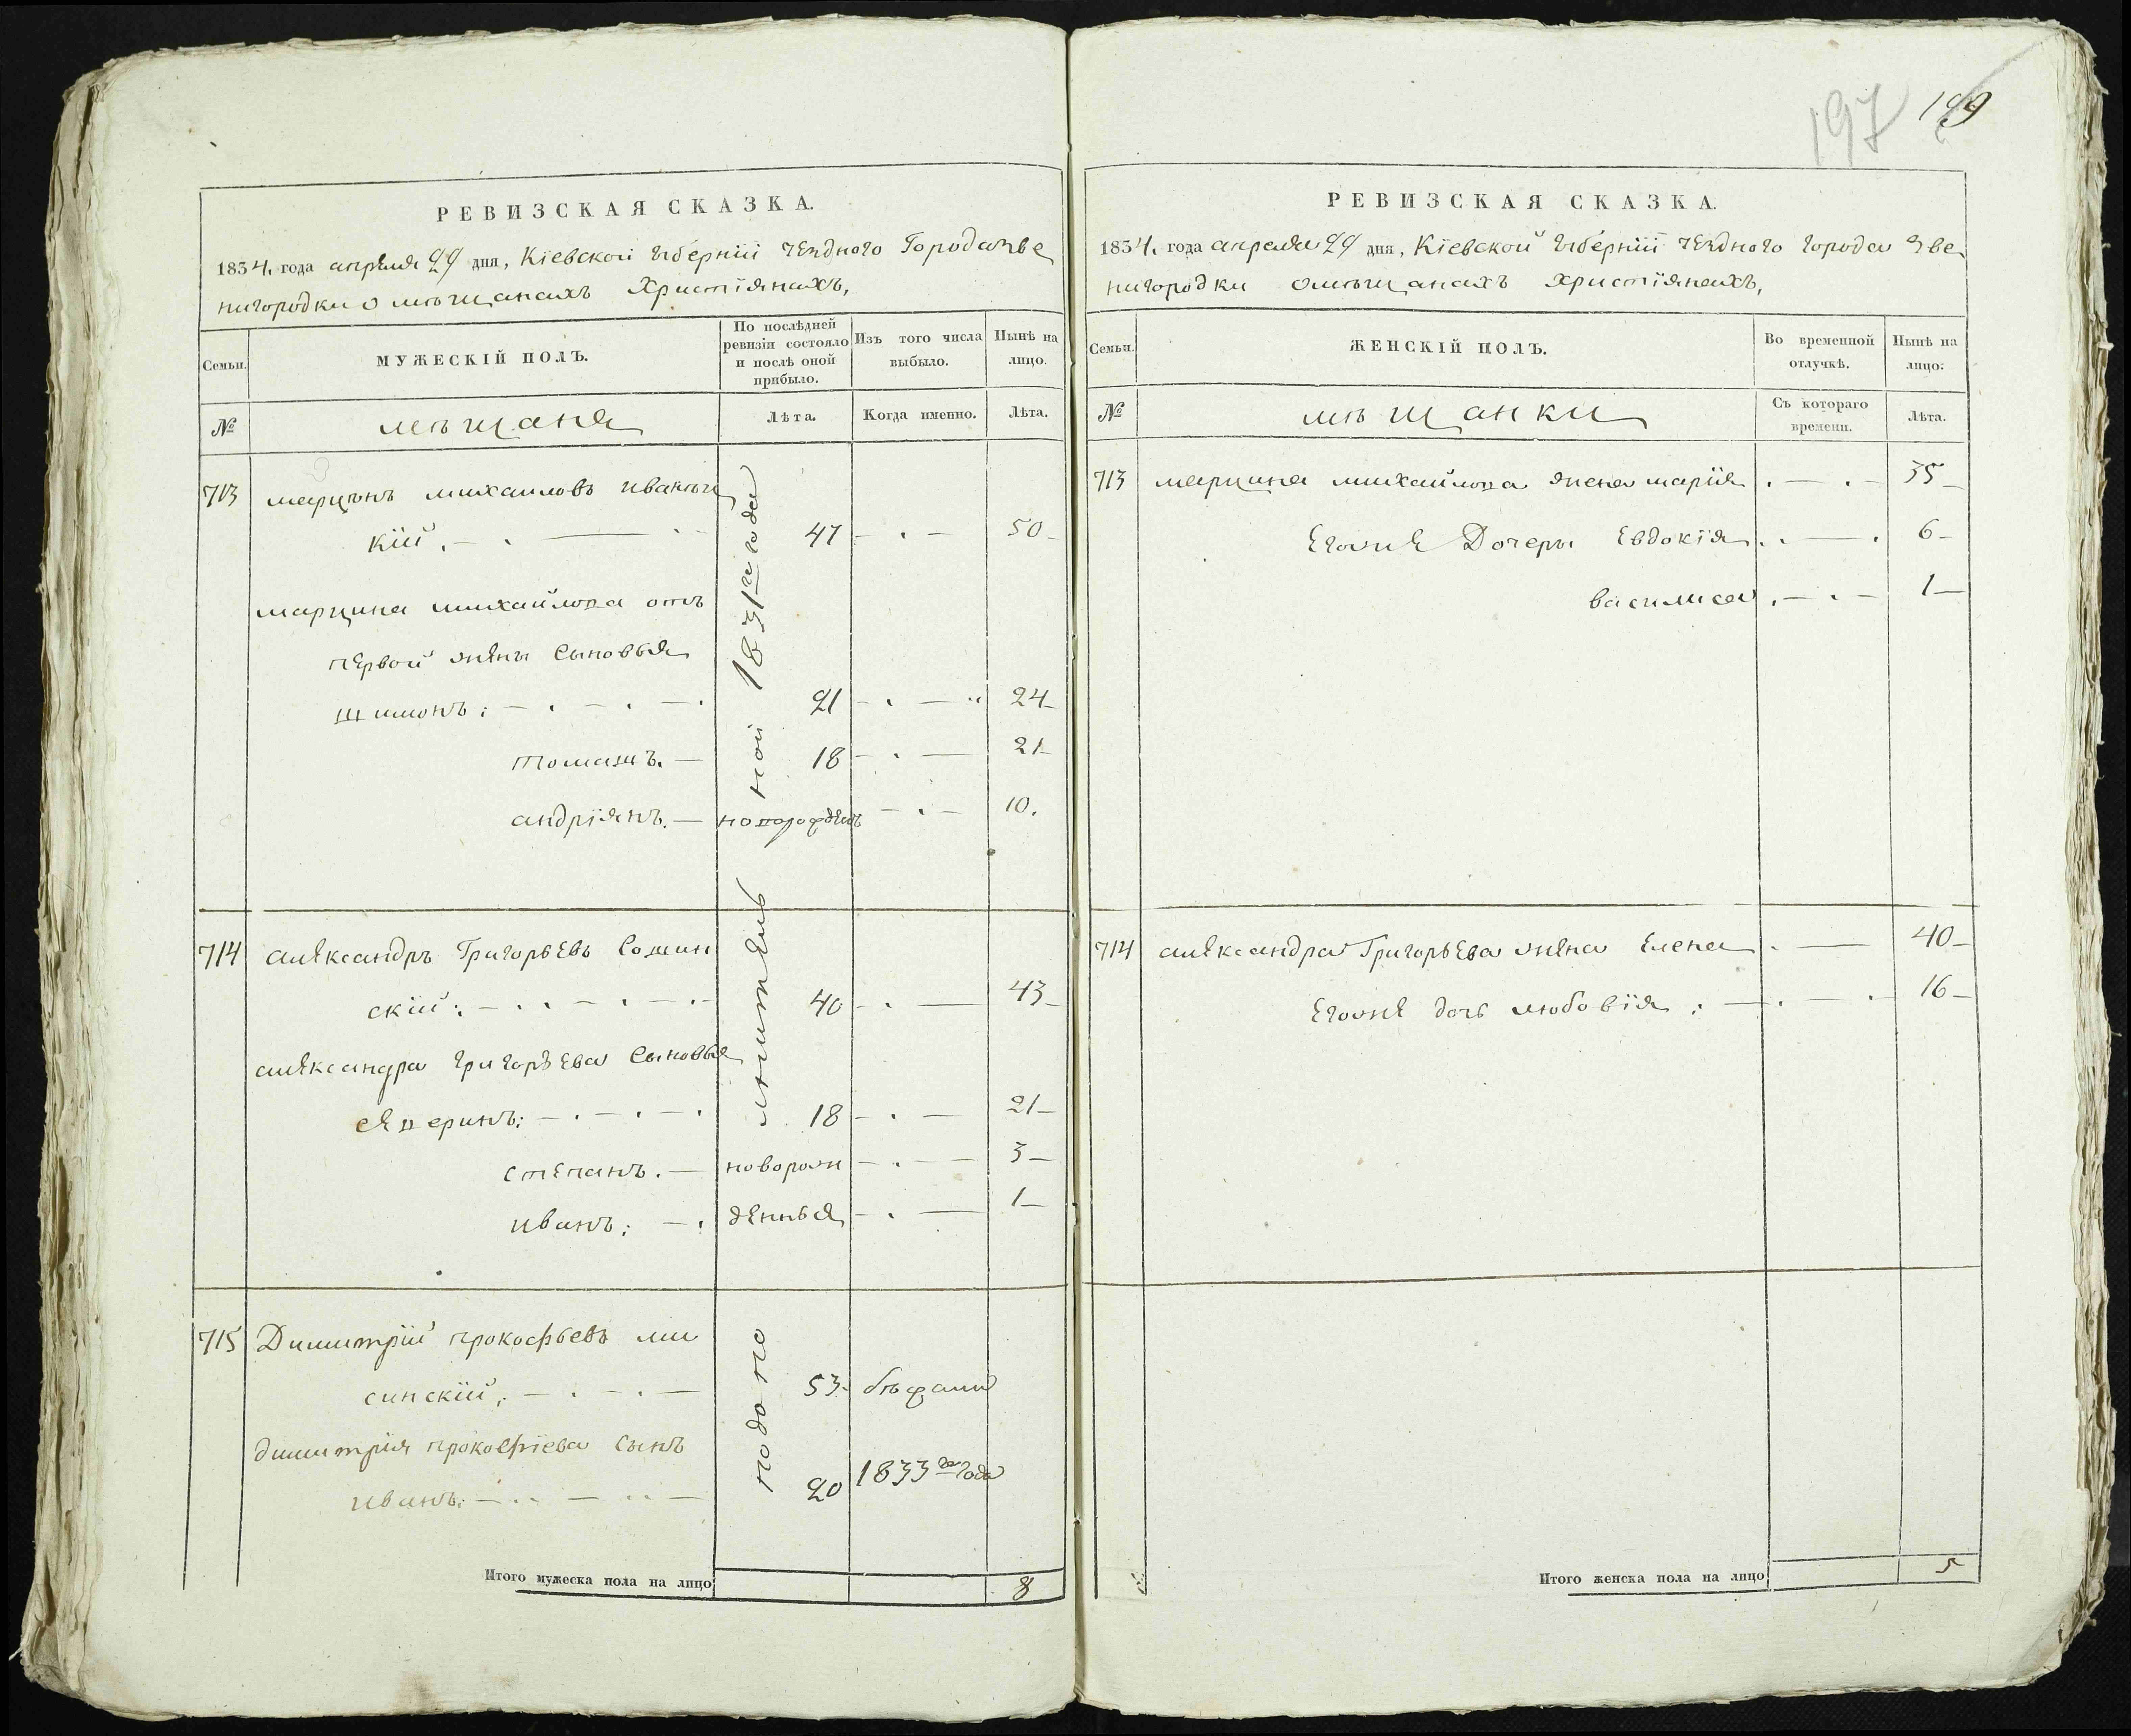 197 199
РЕВИЗСКАЯ СКАЗКА.
1834. года апреля 29 дня, Кіевской губерніи уездного Города зве
нигородки о мѣщанахъ Христіянахъ,
Семьи.
МУЖЕСКІЙ ПОЛЪ.
По послѣдней ревизіи состояло и послѣ оной прибыло.
Изъ того числа выбыло.
Нынѣ на лицо.
№
мѣщаня
Лѣта.
Когда именно.
Лѣта.
713 марцинъ михаиловъ иванъи
кїй. 47 50
марцина михайлова отъ
первой жены сыновья
шимонъ: 21 24
томашъ. 18 21
андріянъ. новорожденъ 10.
714 александръ Григорьевъ Сошин
скій: 40 43
александра григорьева сыновья
северинъ: 18 21
степанъ. новорож 3
иванъ: денныя 1
715 Димитрій прокофьевъ ми
синскій: 53. бѣжали
димитрія прокофіева сынъ
иванъ: 20 1833го года
подо по
ной 1831го года
Итого мужеска пола на лицо 8
РЕВИЗСКАЯ СКАЗКА.
1834. года апреля 29 дня, Кіевской губерніи уездного города зве
нигородки о мѣщанахъ христіянахъ,
Семьи.
ЖЕНСКІЙ ПОЛЪ.
Во временной отлучкѣ.
Нынѣ на лицо:
№
мѣщанки
Съ котораго времени.
Лѣта.
713 марцина михайлова жена марія 35
Егожъ Дочеры Евдокія 6
василиса 1
714 александра Григорьева жена Елена 40
Егоже дочь любовія: 16
Итого женска пола на лицо 5